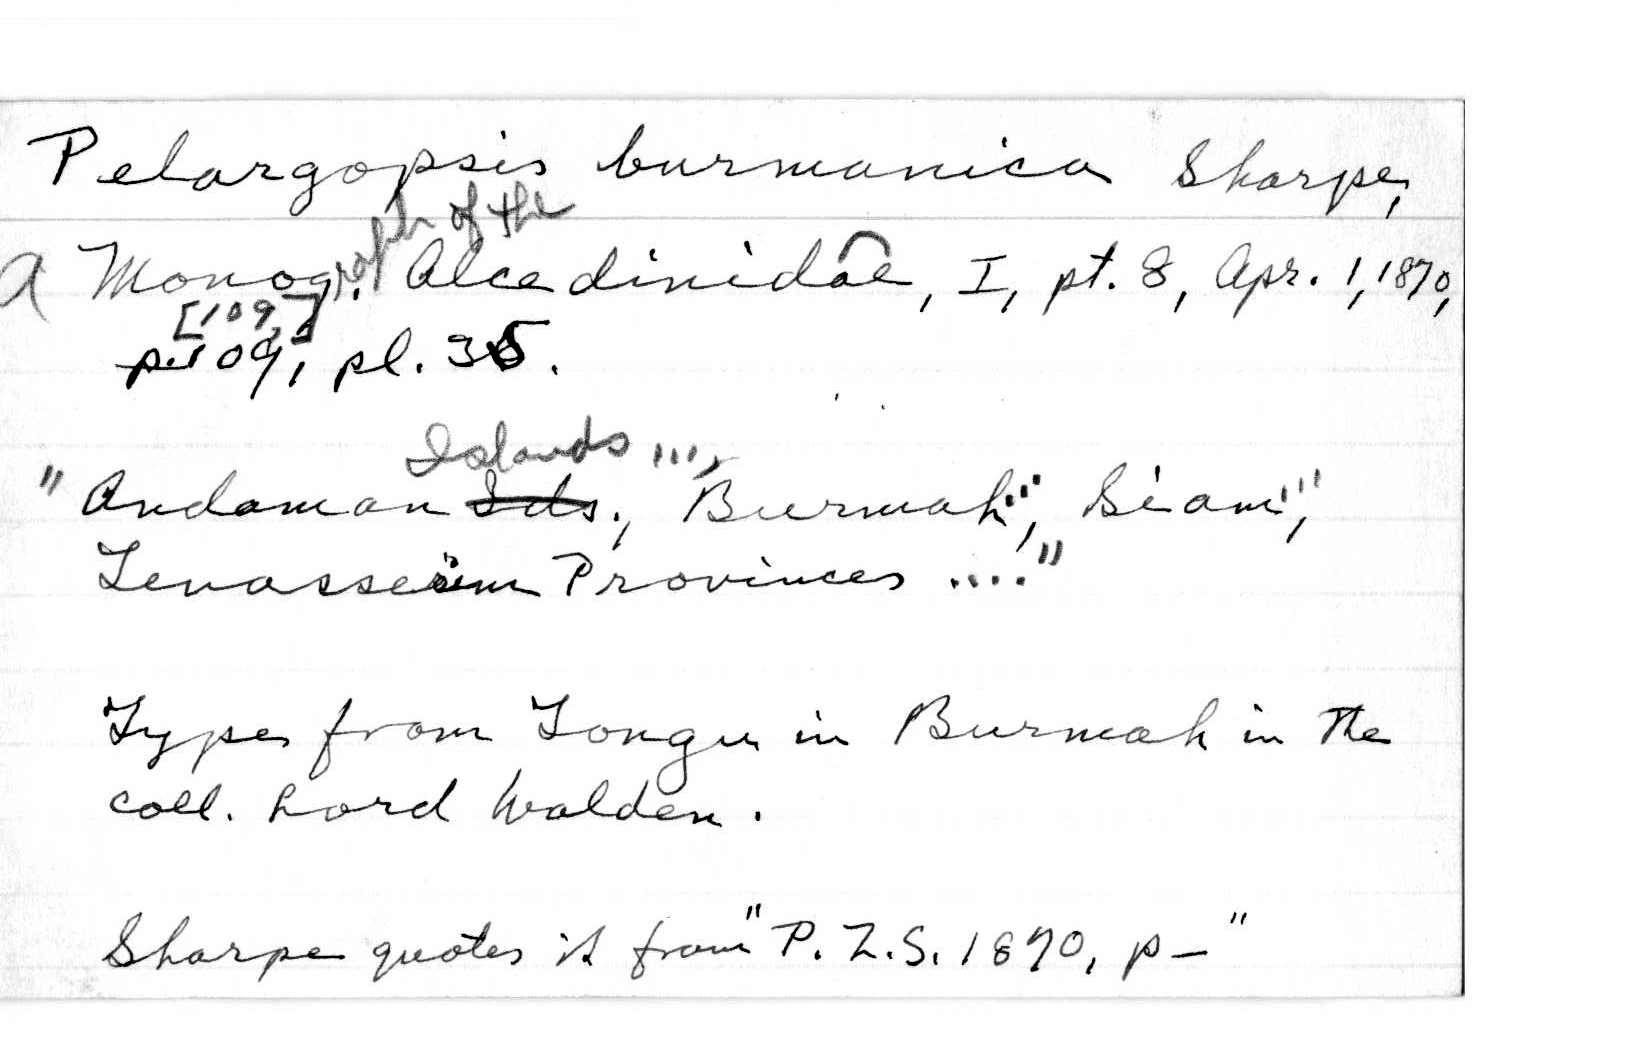 Pelargopsis burmanica Sharpe,
A Monog.raph of the Alcedinidae, I, pt. 8, Apr. 1, 1870,
[109,]
p. 109, pl. 35.
Islands ...,
"Andaman Ids., Burmah", Siam",
Tenasserim Provinces ...."
Type from Tongu in Burmah in the
coll. Lord Walden.
Sharpe quotes it from "P.Z.S. 1870, p—"